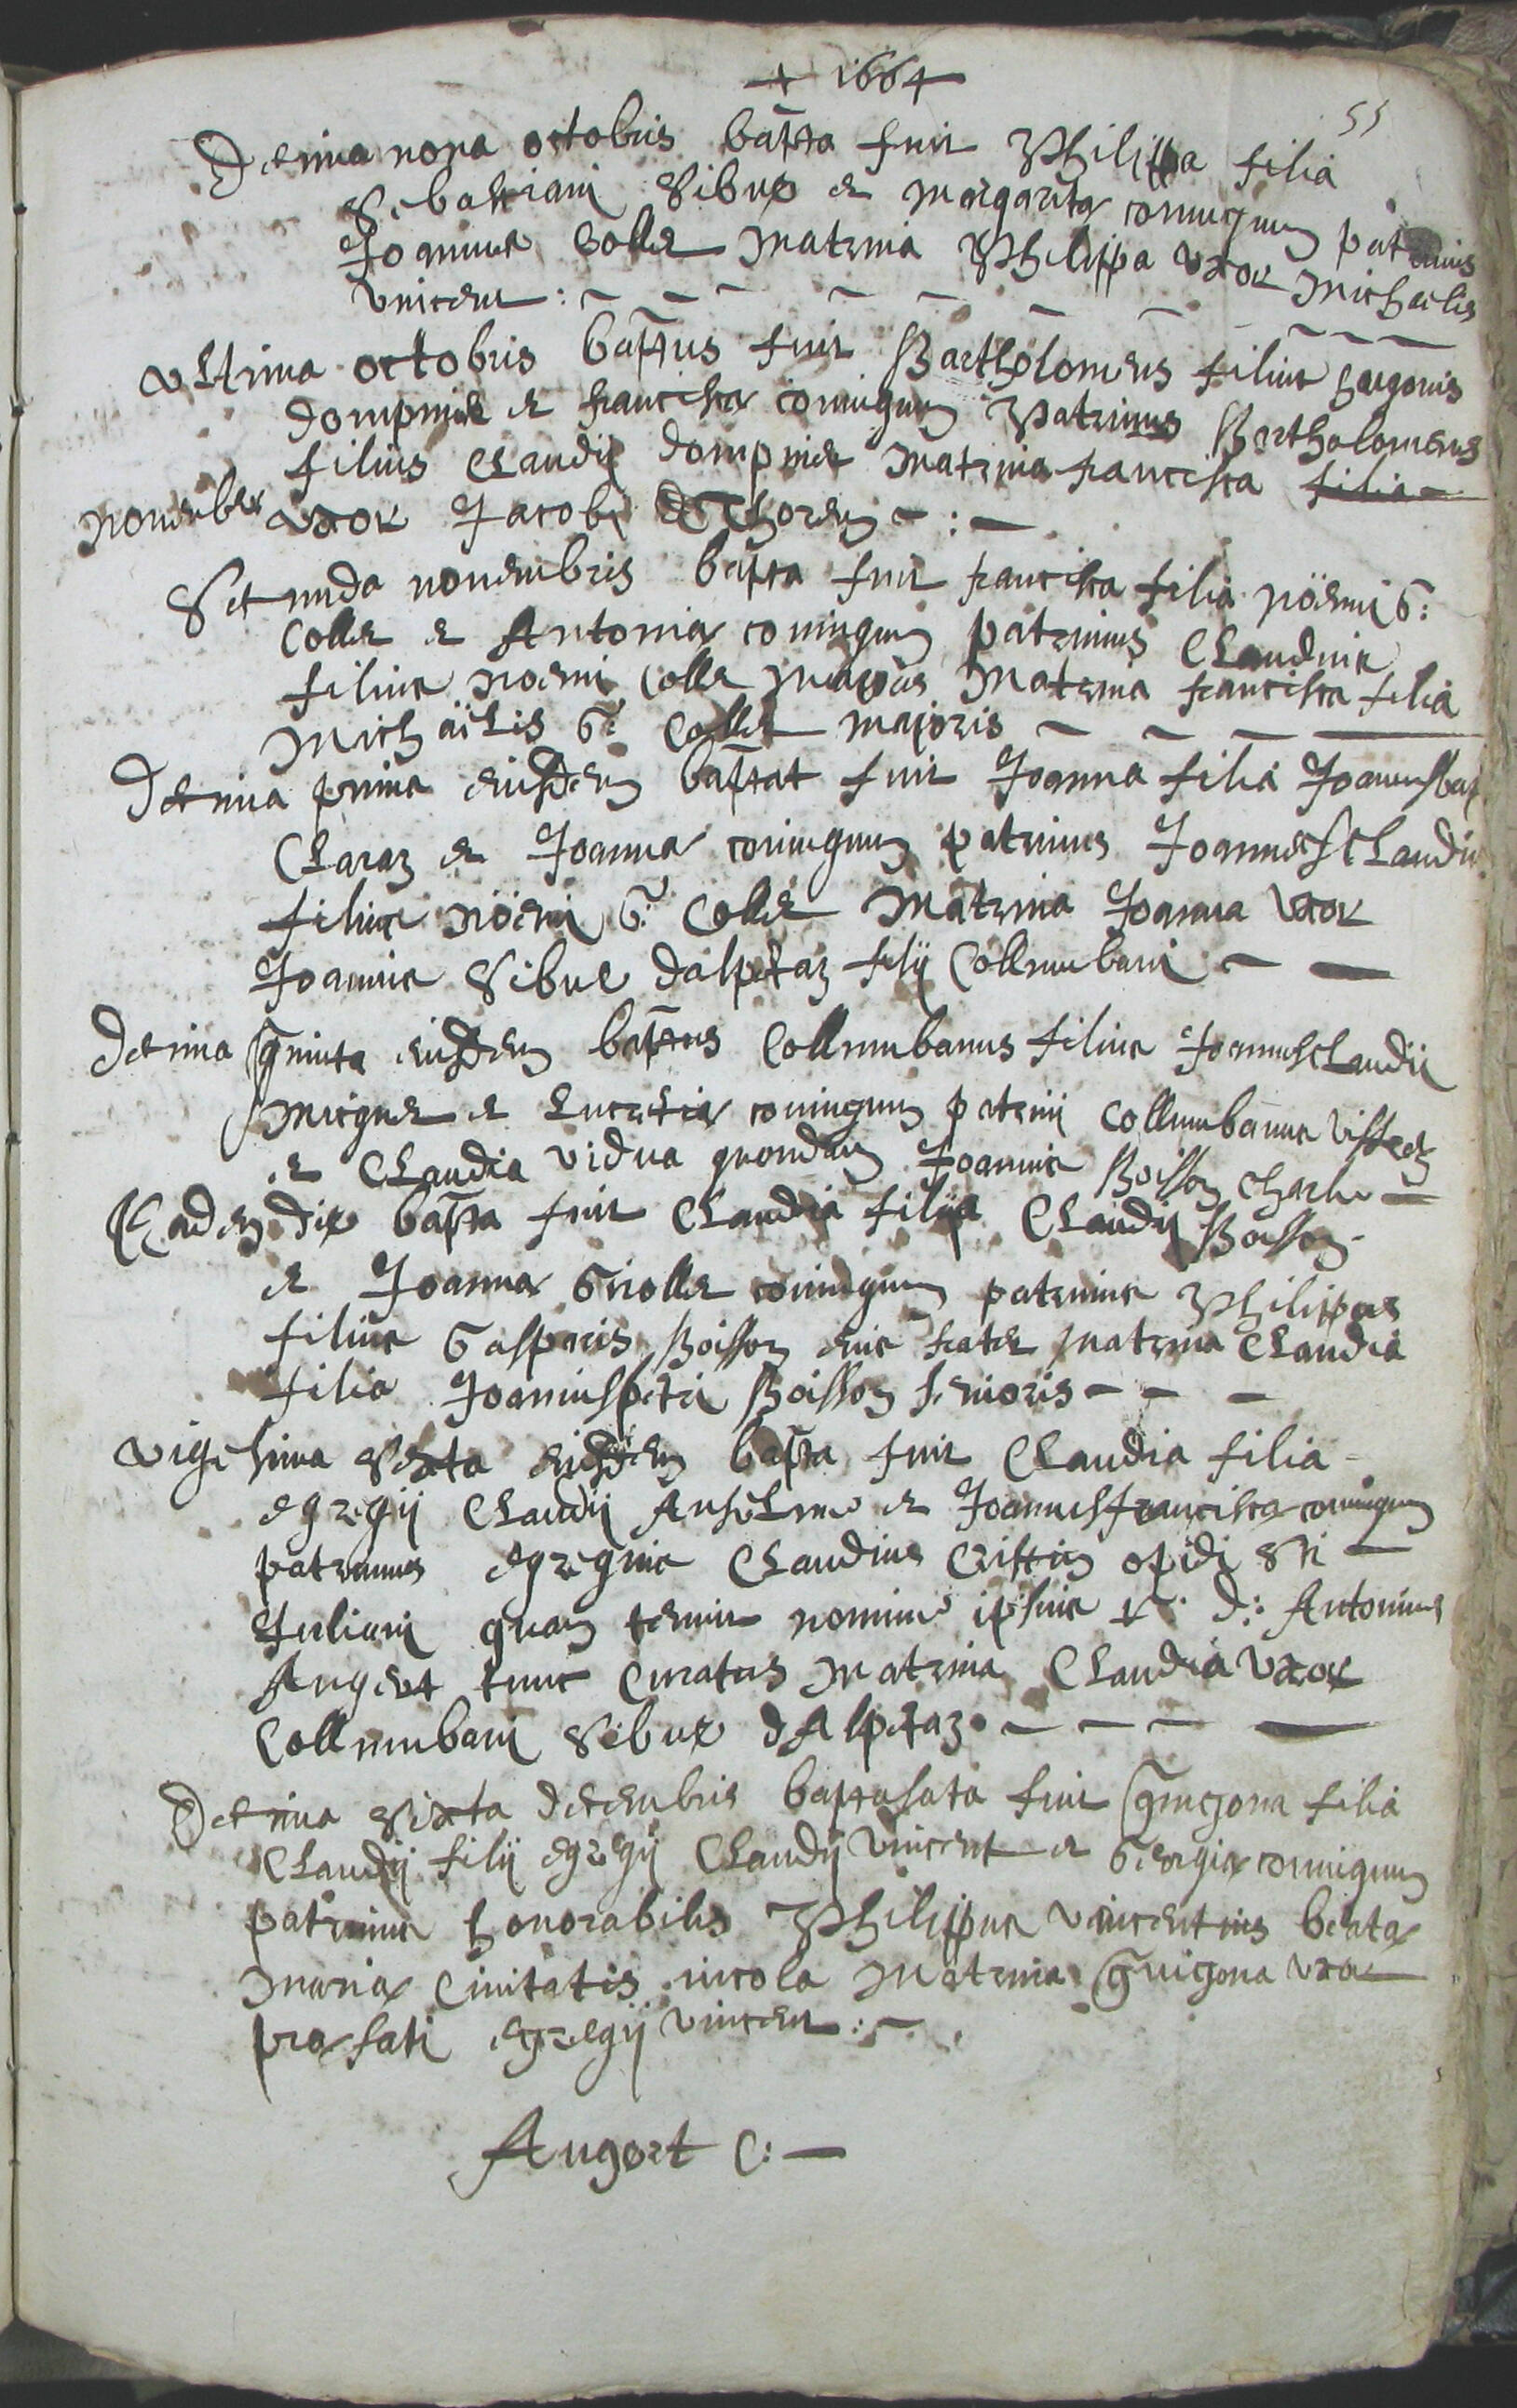 1664
55
Decima nona octobris bapta fuit Philippa filia
Sebastiani Sibue et margaritæ coniugum patrinus
Joannes Collet matrina Philippa uxor michaelis
vincent :
ultima octobris baptus fuit Bartholomeus filius
dompmier et franciscæ coniugum patrinus Bartholomeus
filius Claudij dompmier matrina francisca filia
november uxor Jacobi
Secunda novembris bapta fuit francisca filia Nöemi G:
Collet et Antoniæ coniugum patrinus Claudius
filius Noemi Collet matrina francisca filia
Michäelis G: Collet majoris
Decima prima eiusdem baptat fuit Joanna filia
Claraz et Joannæ coniugum patrinus Joannes Claudius
filius nöemi G: Collet matrina Joanna uxor
Joannis Sibue dalpetaz filij Collumbani
Decima quinta eiusdem baptus Collumbanus filius Joannis Claudij
et Lucretiæ coniugum patrini Collumbanus
et Claudia vidua quondam Joannis Boisson
Eadem die bapta fuit Claudia filia Claudij Boisson
et Joannæ Griollet coniugum patrinus Philippus
filius Gasparis Boisson eius frater matrina Claudia
filia Joannis petri Boisson senioris
vigesima sexta eiusdem bapta fuit Claudia filia
egregij Claudij Anselme et Joannes franciscæ coniugum
patrinus egregius Claudius opidi Sti
Juliani quam tenuit nomine ipsius r. d: Antonius
Augert tunc Curatus matrina Claudia uxor
Collumbani Sibue dAlpetaz
Decima sixta decembris baptasata fuit guigona filia
Claudij filij egregij Claudij vincent et Georgiæ coniugum
patrinus honorabilis Philippus vincentius beatæ
mariæ Civitatis incola matrina guigona uxor
præfati egregij vincent :
Augert C: